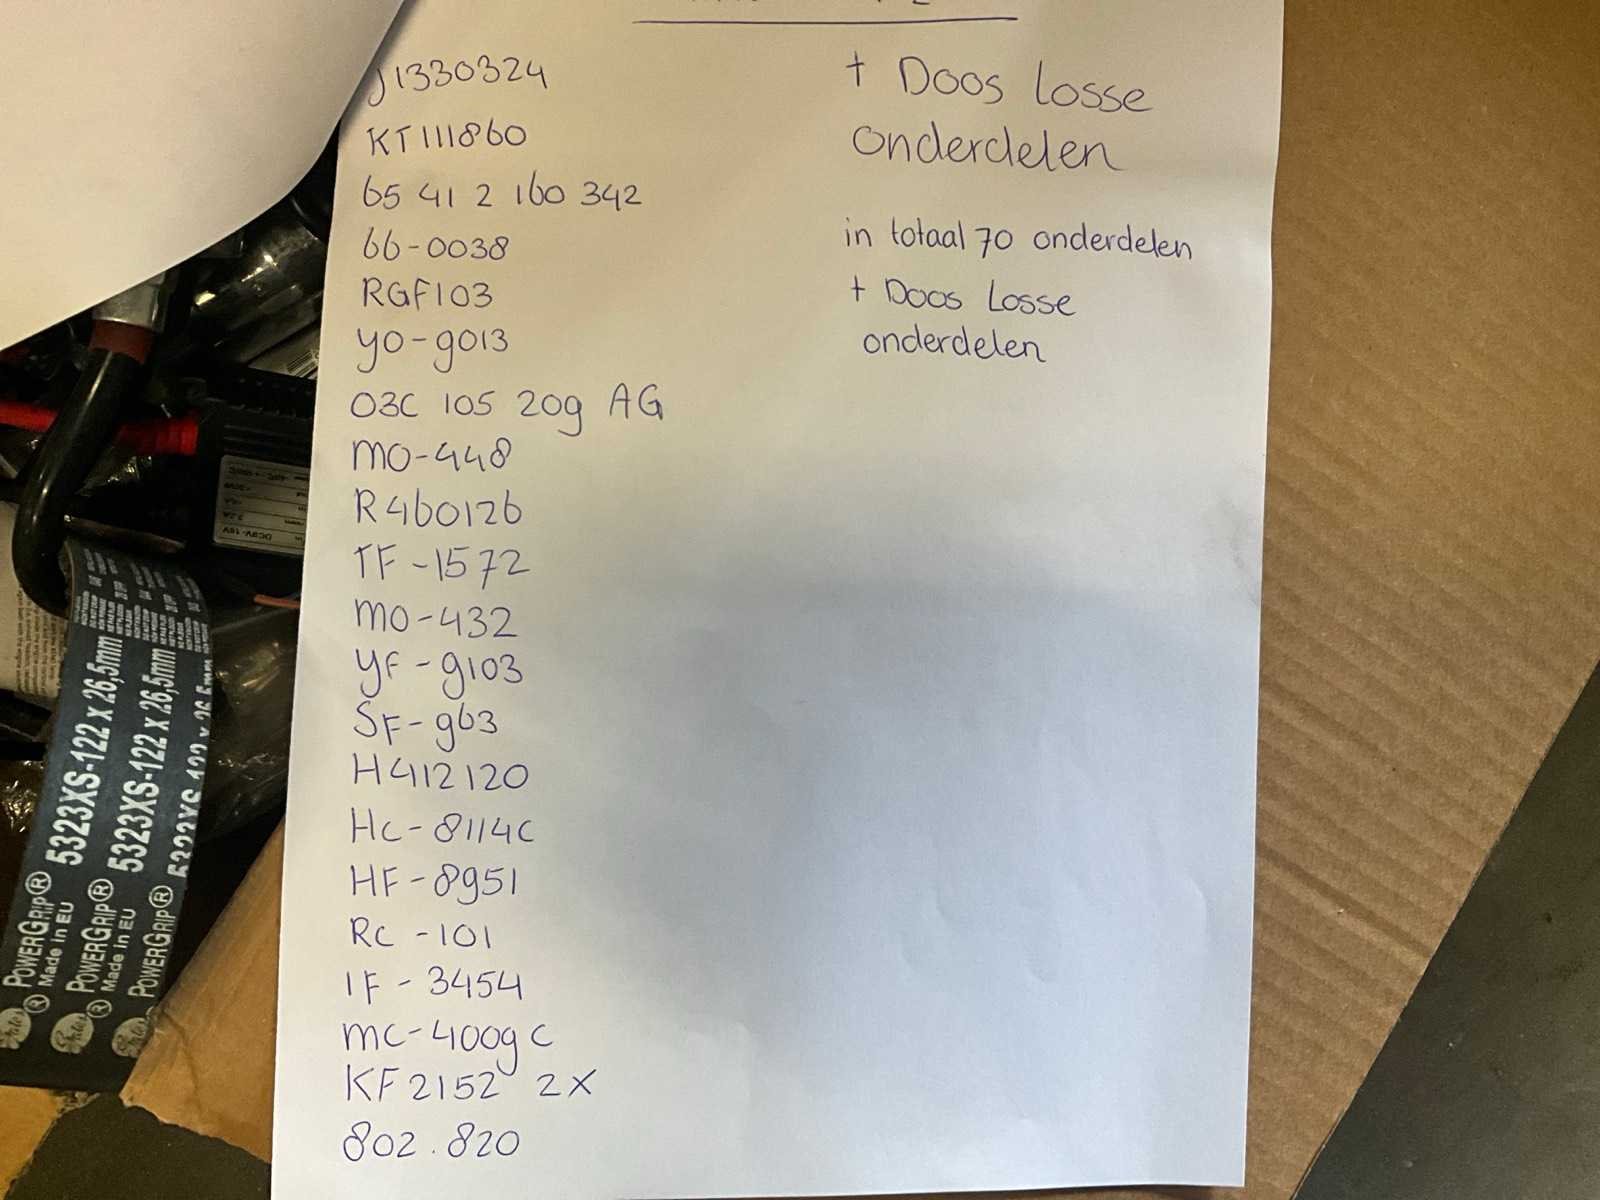 J1330324
KT111860
65 41 2 160 342
66-0038
RGF103
yo-9013
03C 105 209 AG
MO-448
R460126
TF-1572
MO-432
YF-9103
SF-963
H412120
HC-8114C
HF-8951
RC-101
IF-3454
MC-4009C
KF2152 2X
802.820
+ Doos Losse
onderdelen
in totaal 70 onderdelen
+ Doos Losse
onderdelen
5323XS-122 x 26,5mm
POWERGRIP®
Made in EU
5323XS-122 x 26,5mm
POWERGRIP®
Made in EU
5323XS-122 x 26,5mm
POWERGRIP®
DC9V-16V